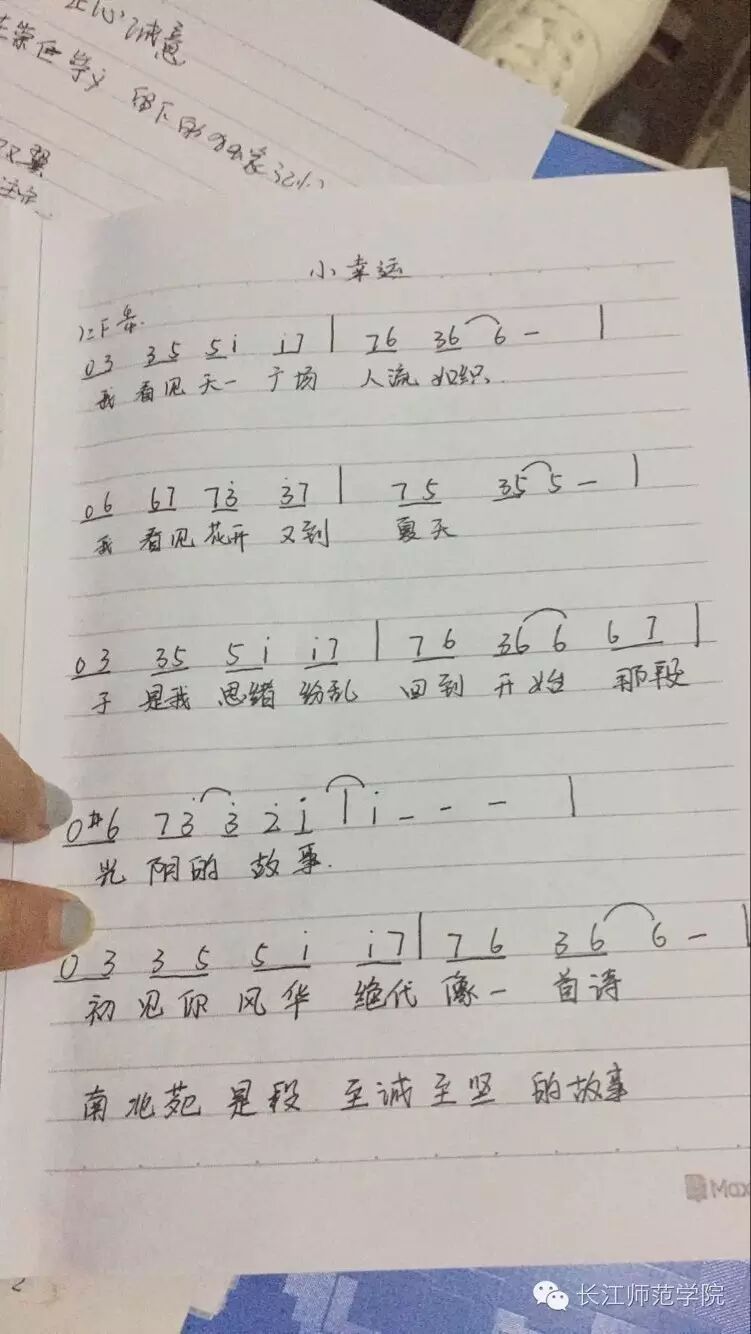 正心诚意
留下的
双翼
小幸运
江下集.
03 35 5i i7 | 76 36 6 - |
我 看见 天一 广场 人流 如织.
06 67 73 37 | 75 35 5 - |
我 看见 花开 又到 夏天
03 35 5i i7 | 76 36 6 67 |
于 是我 思绪 纷乱 回到 开始 那段
0#6 73 3 2 i | i - - - |
光 阴的 故事.
03 35 5i i7 | 76 36 6 - |
初 见你 风华 绝代 像一 首诗
南北苑 是段 至诚至坚 的故事
Max
2
长江师范学院